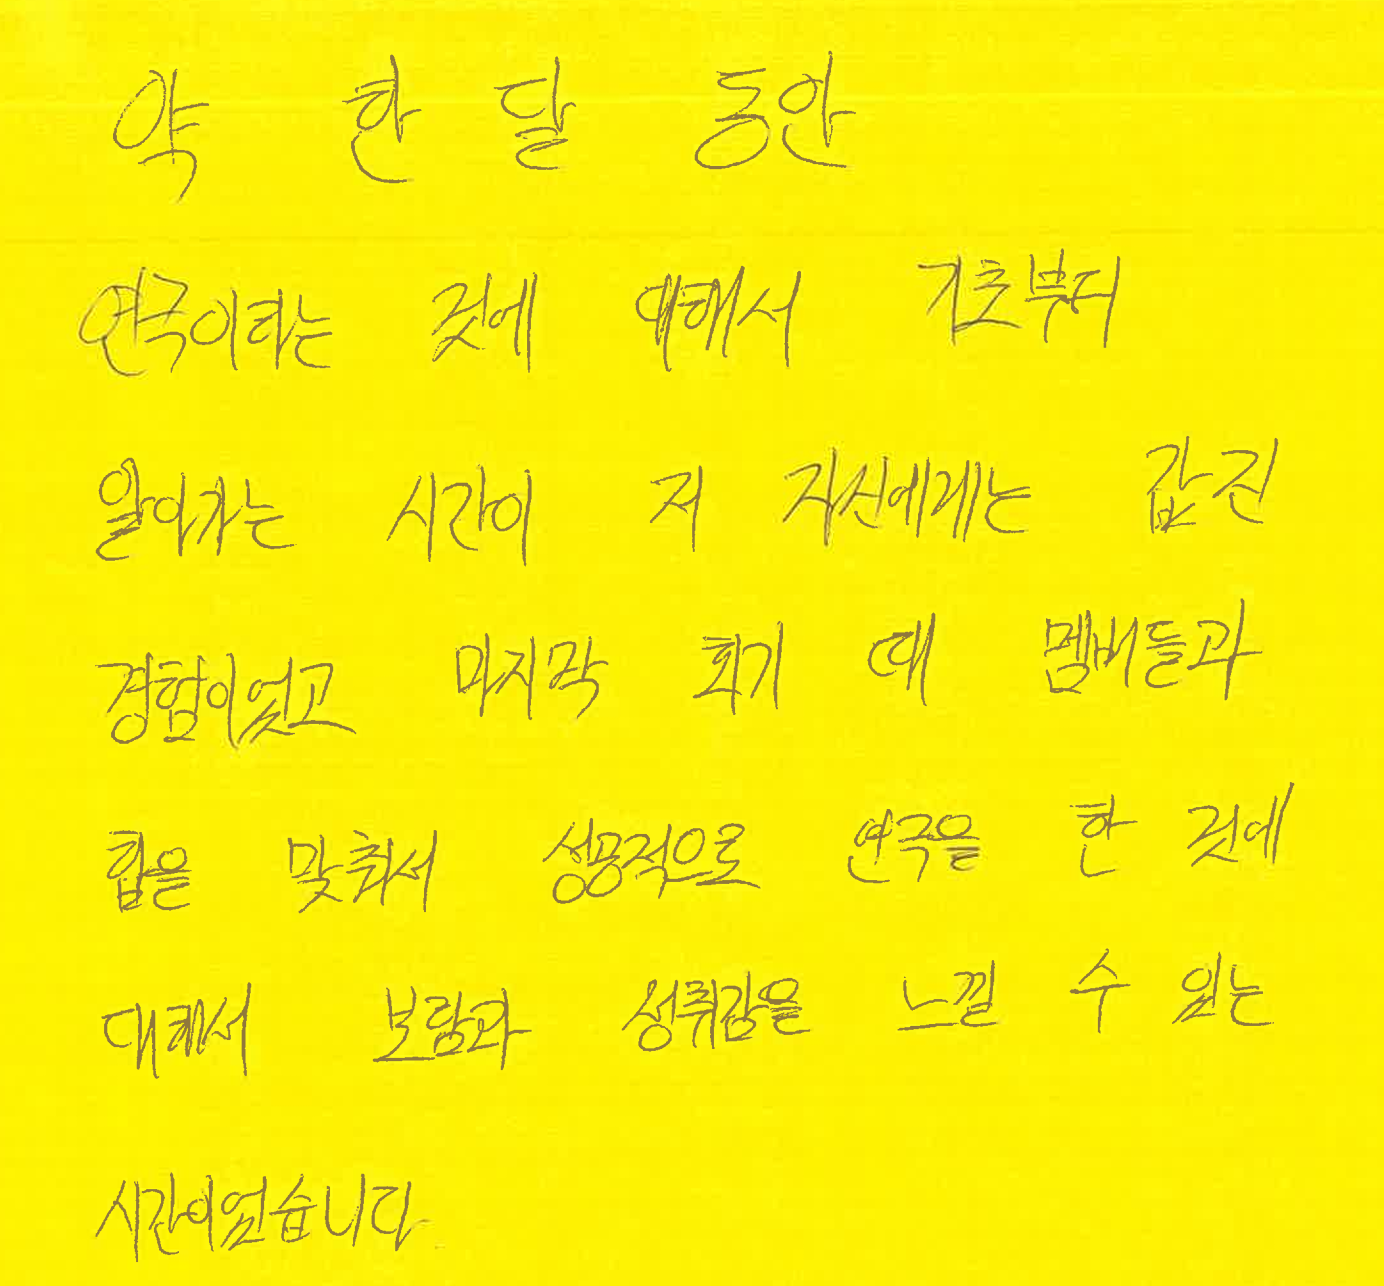 약 한 달 동안
연극이라는 것에 대해서 기초부터
알아가는 시간이 저 자신에게는 값진
경험이었고 마지막 회기 때 멤버들과
합을 맞춰서 성공적으로 연극을 한 것에
대해서 보람과 성취감을 느낄 수 있는
시간이었습니다